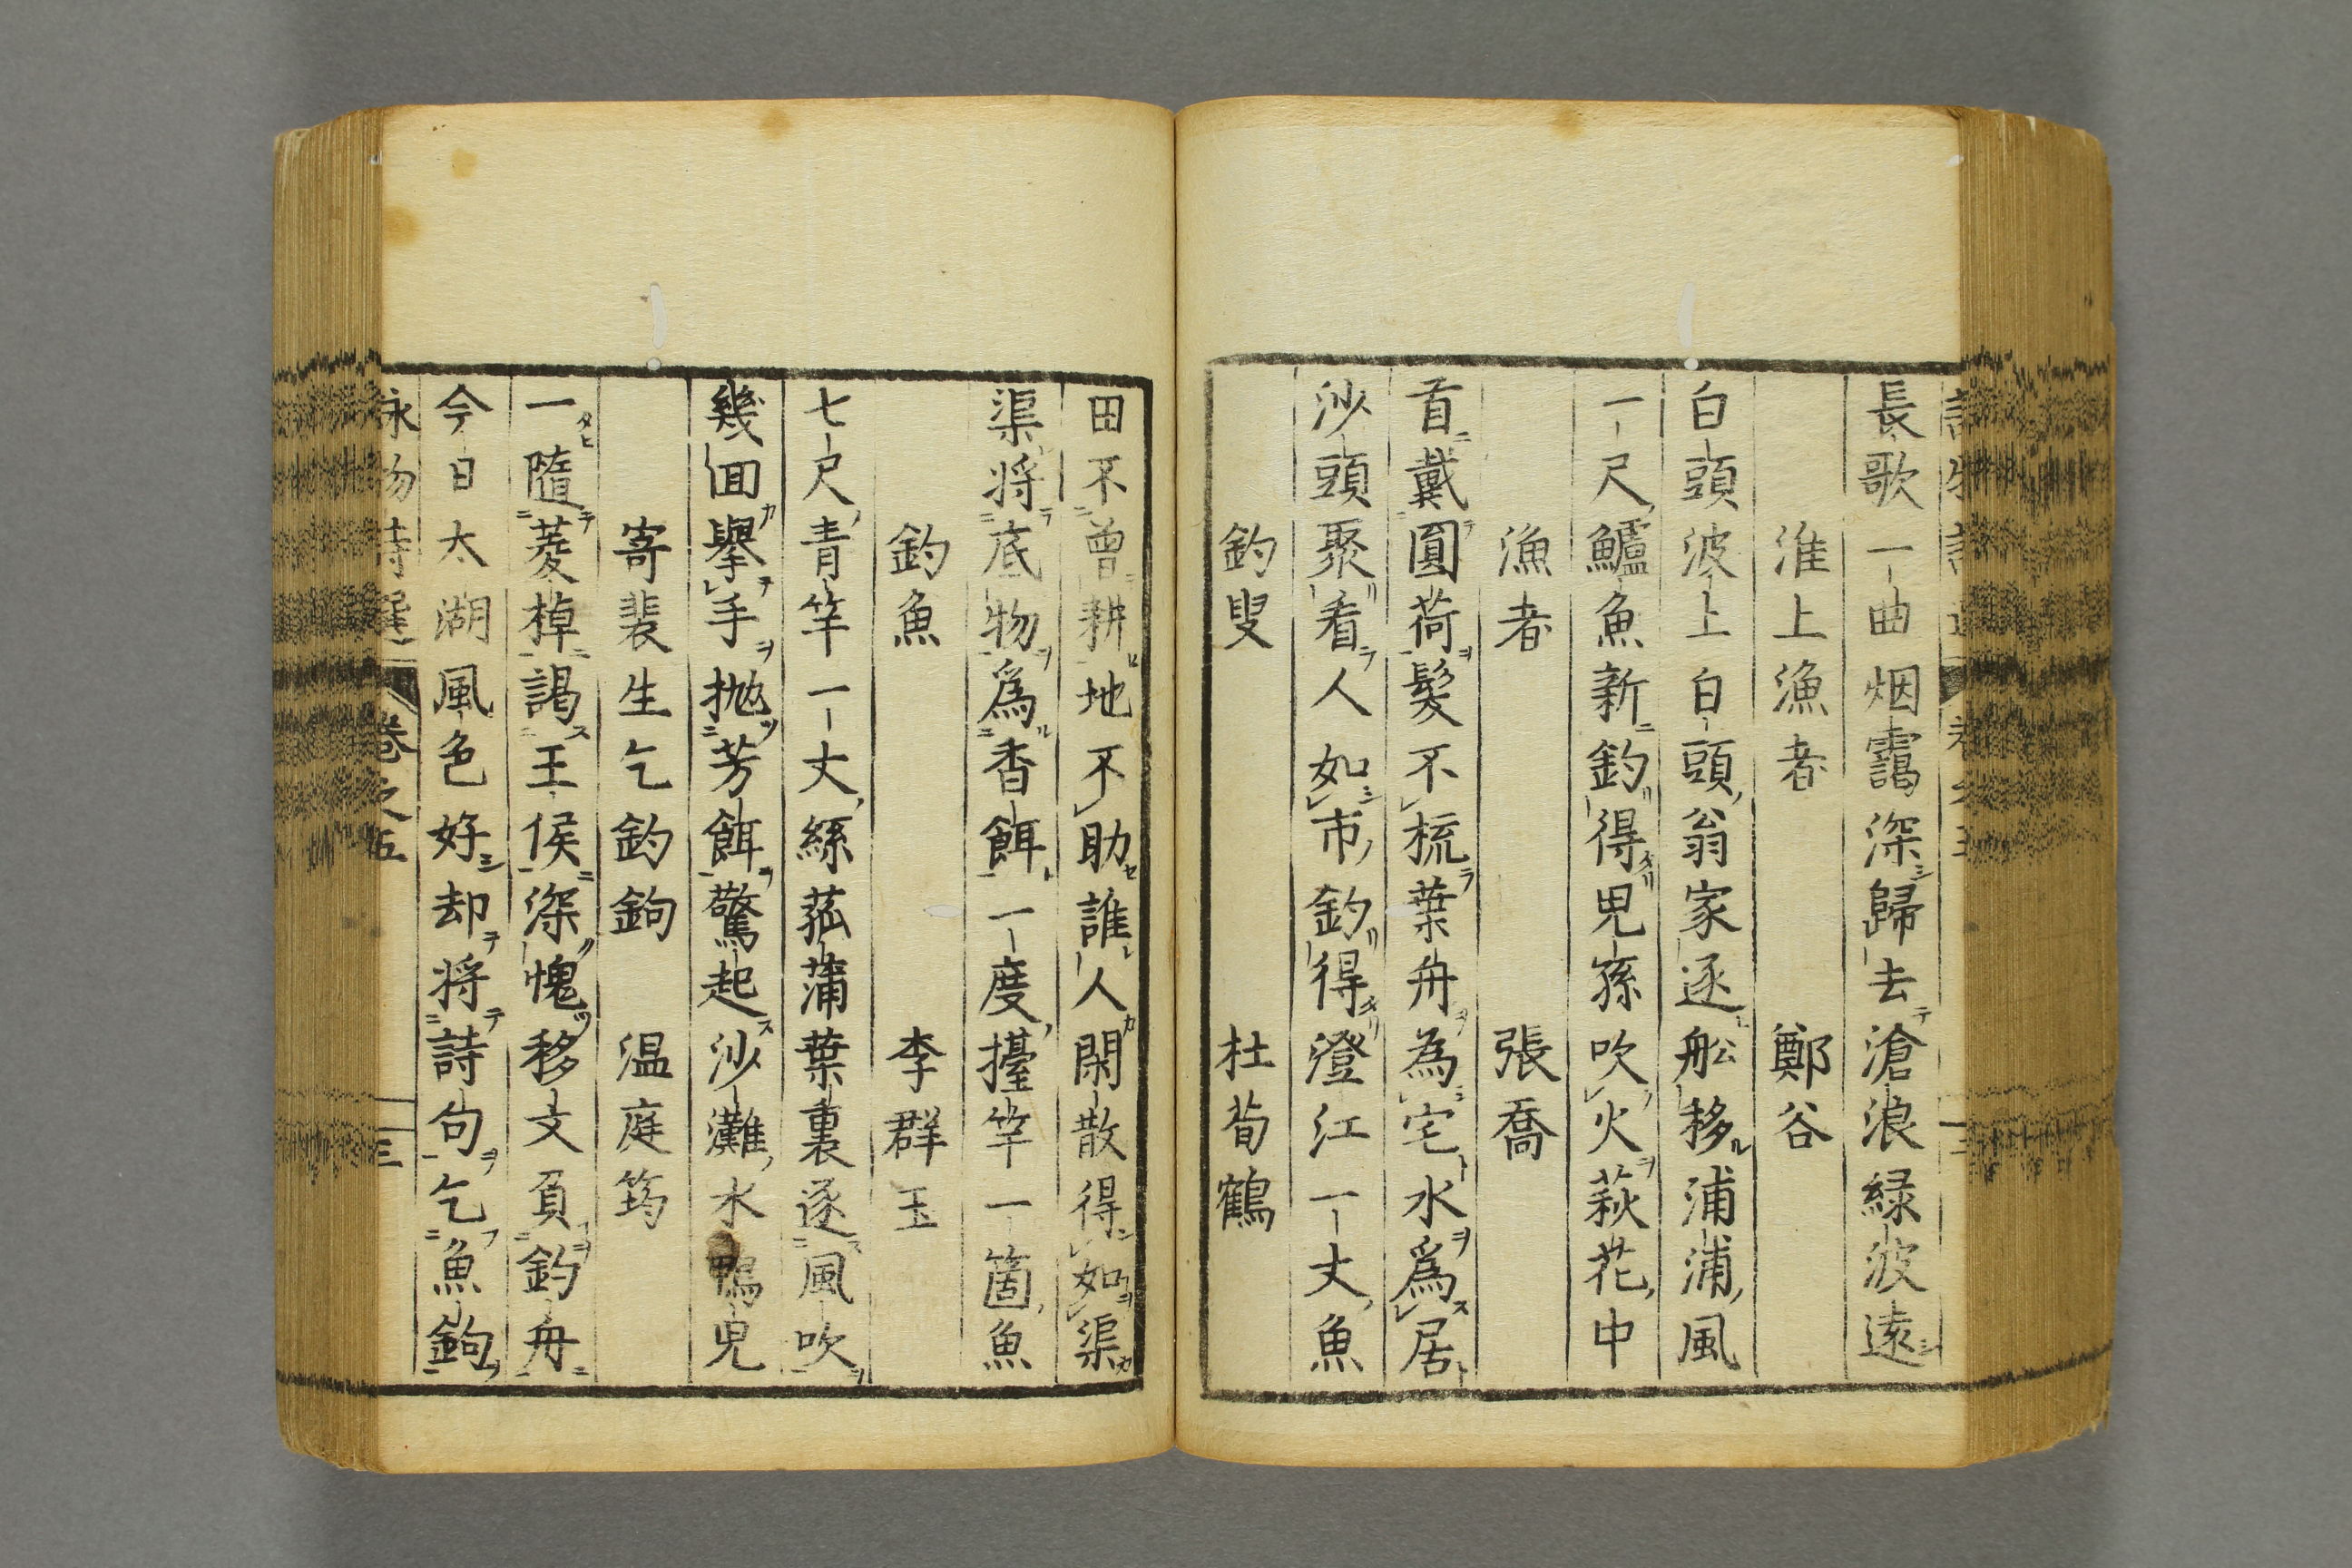 長歌一曲烟靄深歸去滄浪緑波遠
淮上漁者 鄭谷
白頭波上白頭翁家逐舩移浦浦風
一尺鱸魚新釣得兒孫吹火萩花中
漁者 張喬
首戴圓荷髪不梳葉舟為宅水爲居
沙頭聚看人如市釣得澄江一丈魚
釣叟 杜荀鶴
田不曾耕地不助誰人閑散得如渠
渠将底物爲香餌一度擡竿一箇魚
釣魚 李群玉
七尺青竿一丈絲菰蒲葉裏逐風吹
幾回擧手抛芳餌驚起沙灘水鴨兒
寄裴生乞釣鉤 温庭筠
一隨菱棹謁王侯深愧移文負釣舟
今日太湖風色好却将詩句乞魚鉤
詠物詩選 卷之五 三